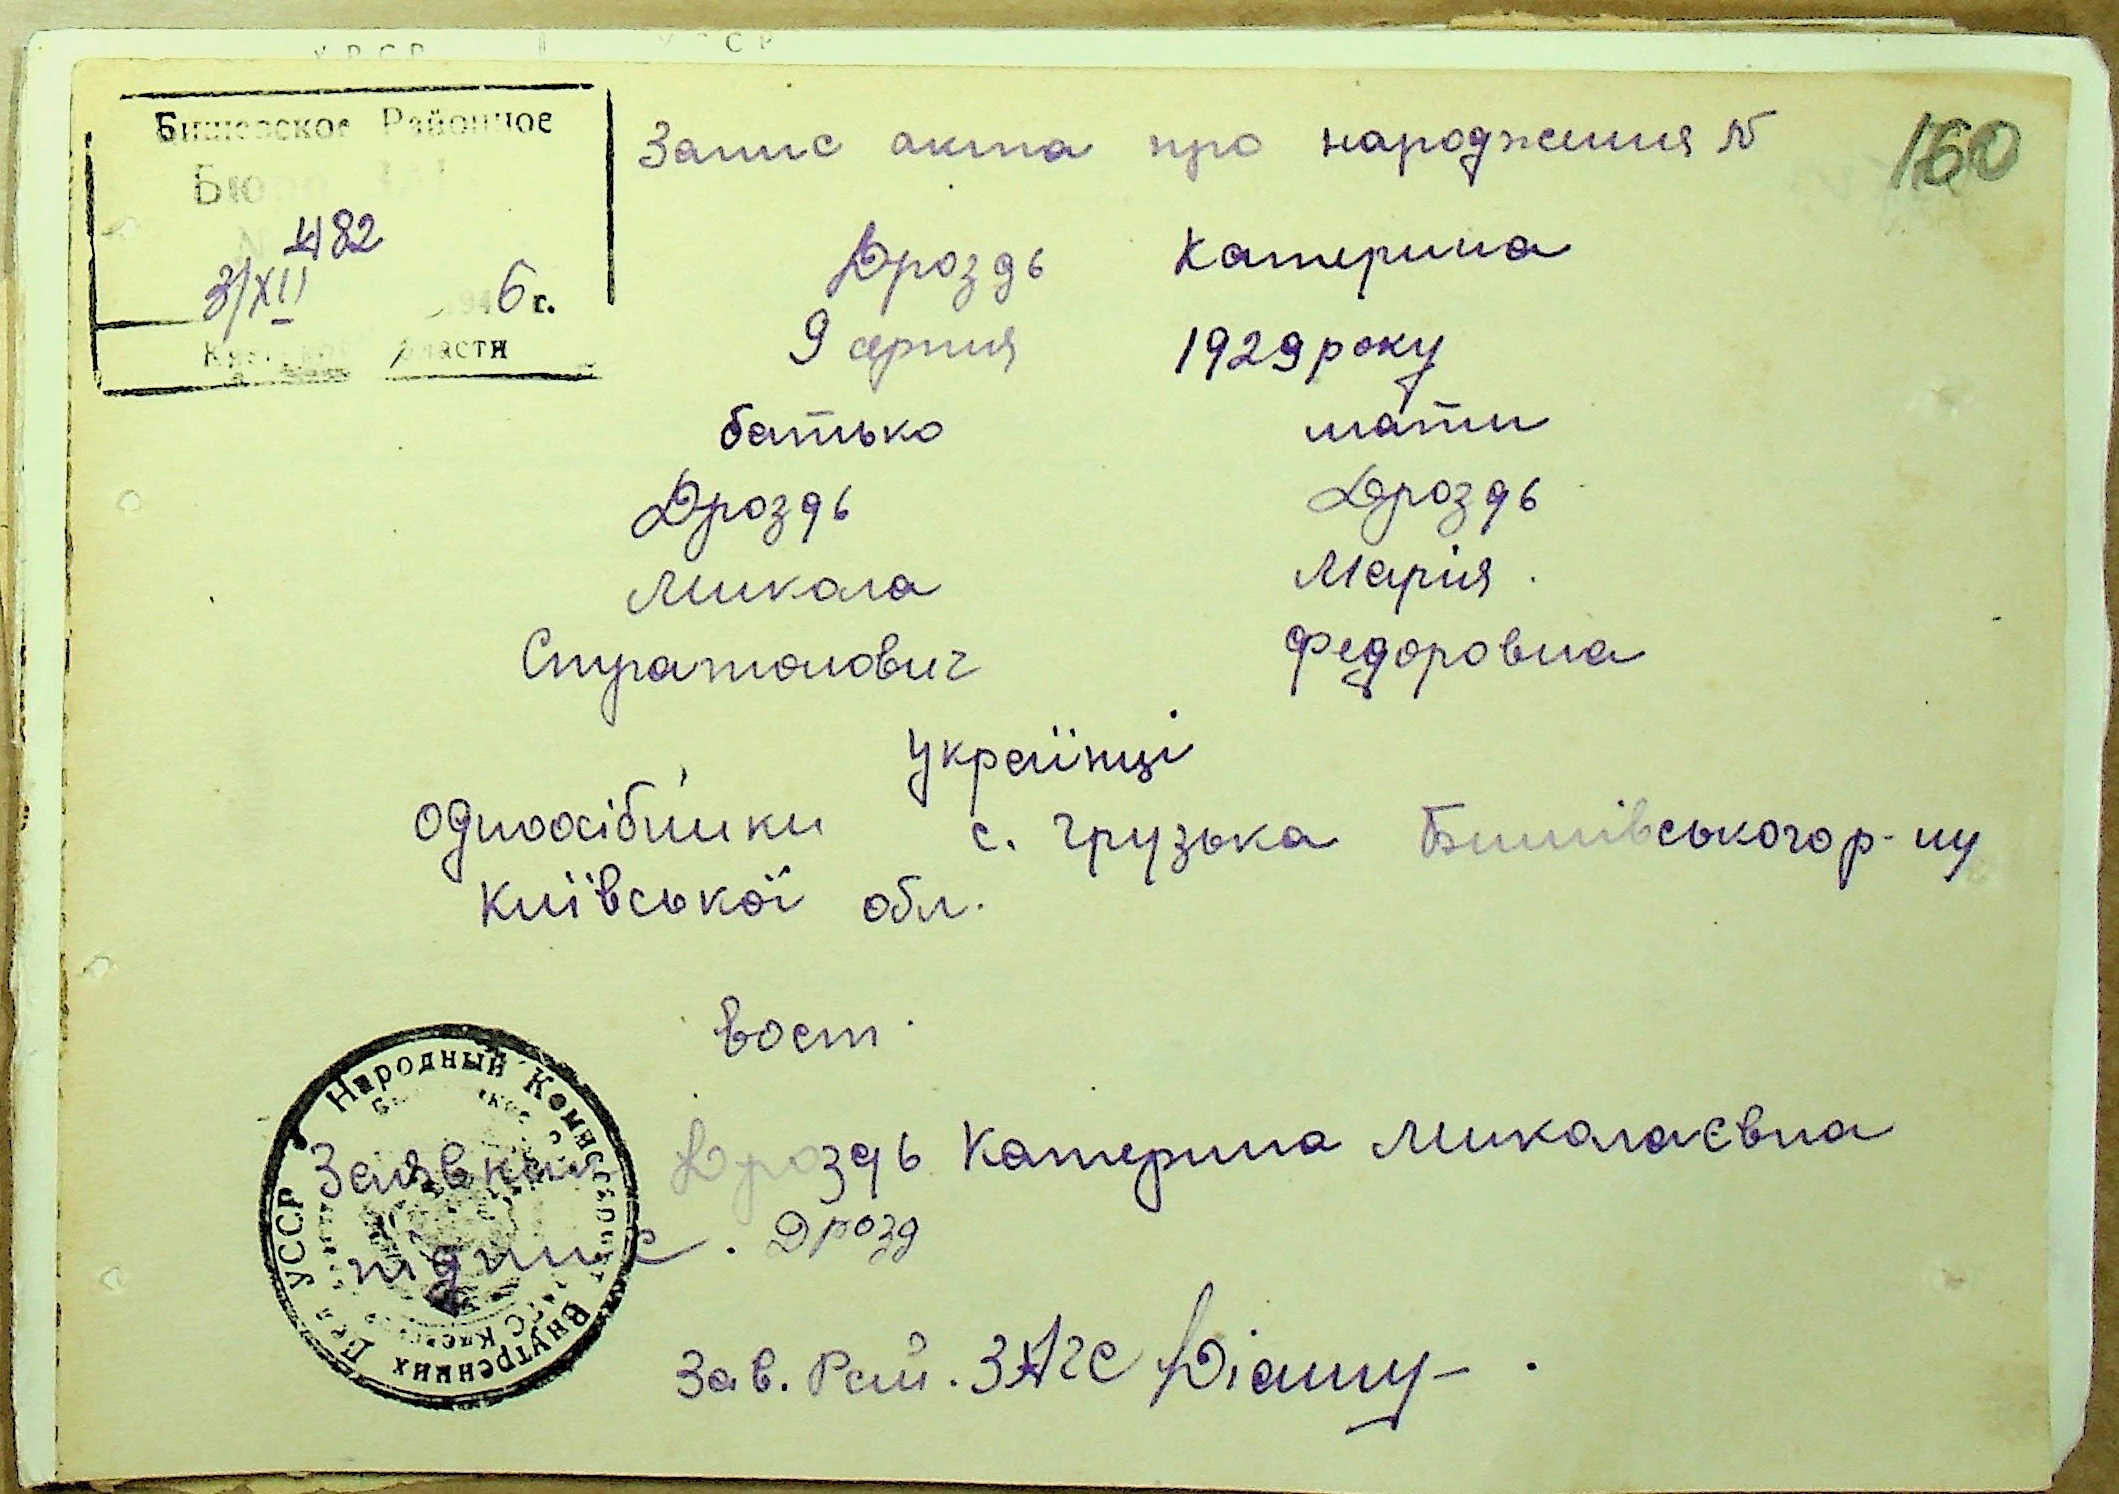 УРСР УССР
Бишевское Районное
Бюро
482
3/XII 1946 г.
Киевской области
Запис акта про народження № 160
Дроздь Катерина
9 серпня 1929 року
батько мати
Дроздь Дроздь
Микола Марія.
Стратонович Федоровна
Українці
Одноосібники с. Грузька Бишівського р-ну
Київської обл.
вост.
Заявник Дроздь Катерина Миколаєвна
підпис. Дрозд
Народный Комиссариат Внутренних Дел УССР
Зав. Рай. ЗАГС